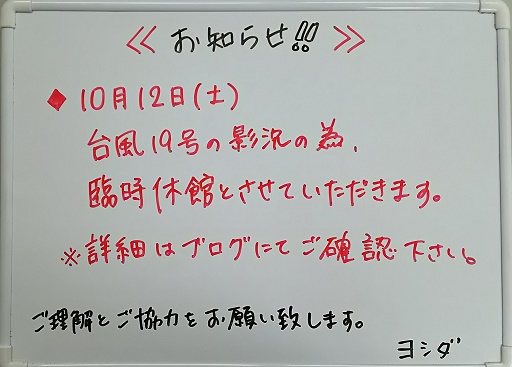 ≪ お知らせ!! ≫
◆ 10月12日(土)
台風19号の影況の為、
臨時休館とさせていただきます。
※詳細はブログにてご確認下さい。
ご理解とご協力をお願い致します。
ヨシダ